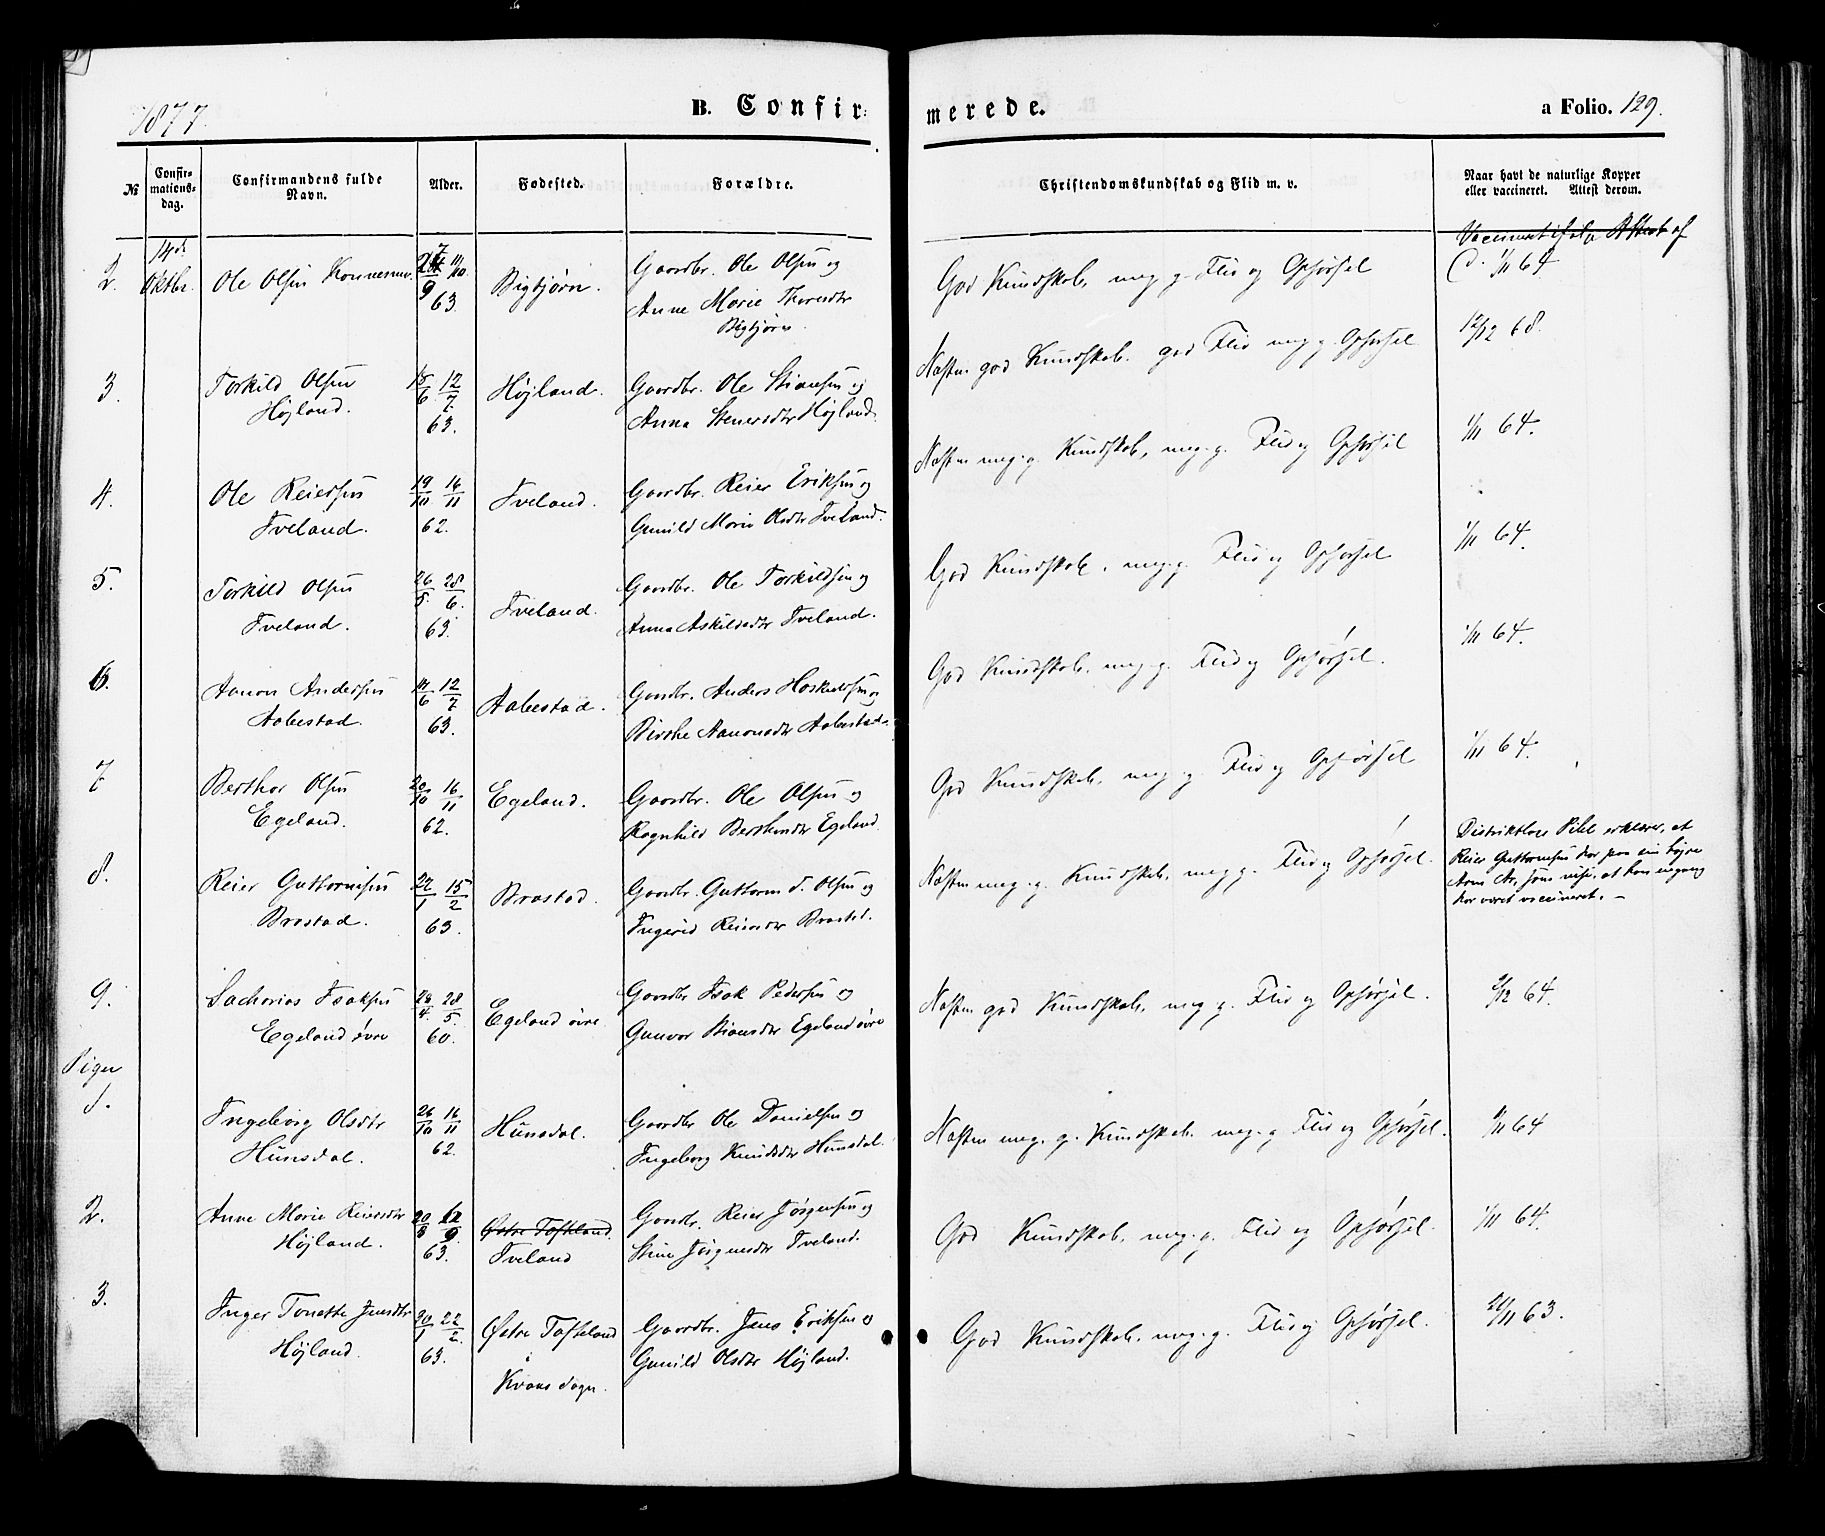 1877.
B. Confir-
merede.
a Folio. 129.
№
Confir-
mations-
dag.
Confirmandens fulde
Navn.
Alder.
Fødested.
Forældre.
Christendomskundskab og Flid m. v.
Naar havt de naturlige Kopper
eller vaccineret. Attest derom.
2. 14de
Oktbr. Ole Olsen
9
63.
Bigbjørn.
Gaardbr. Ole Olsen og
Anne Marie
Bigbjørn.
God Kundskab, meg. g. Flid og Opførsel
1/11 64
3.
Torkild Olsen
Højland.
15/6 12/7
63.
Højland.
Gaardbr. Ole Stiansen og
Anna Stenersdtr Højland.
Næsten god Kundskab. god Flid meg. g. Opførsel
12/12 68.
4.
Ole Reiersen
Tveland.
19/10 16/11
62.
Tveland.
Gaardbr. Reier Eriksen og
Gunild Marie Olsdtr Tveland.
Næsten meg. g. Kundskab, meg. g. Flid og Opførsel
1/11 64.
5.
Torkild Olsen
Tveland.
26/5 28/6.
63.
Tveland.
Gaardbr. Ole Torkildsen og
Anna Askildsdtr Tveland.
God Kundskab, meg. g. Flid og Opførsel
1/11 64.
6.
Aanon Andersen
Aabestad.
12/7
63.
Aabestad.
Gaardbr. Anders
Birthe Aanonsdtr Aabestad.
God Kundskab, meg. g. Flid og Opførsel.
1/11 64.
7
Berthor Olsen
Egeland.
20/10 16/11
62.
Egeland.
Gaardbr. Ole Olsen og
Ragnhild Egeland.
God Kundskab, meg. g. Flid og Opførsel
1/11 64.
8.
Reier Guttormsen
Brastad.
22/1 15/2
63.
Brastad.
Gaardbr. Guttorm S. Olsen og
Ingerid Reiersdtr Brastad.
Næsten meg. g. Kundskab, meg. g. Flid og Opførsel.
erklærer, at
Reier Guttormsen har paa sin højre
Arm Ar, som vise, at han engang
har været vaccineret. –
9.
Sacharias Isaksen
Egeland øvre
28/5.
60.
Egeland øvre
Gaardbr Isak Pedersen og
Gunvor Stiansdtr Egeland øvre
Næsten god Kundskab, meg. g. Flid og Opførsel.
64.
Piger
1.
Ingeborg Olsdtr
Hunsdal.
26/10 16/11
62.
Hunsdal.
Gaardbr Ole Danielsen og
Ingeborg Knudsdtr Hunsdal.
Næsten meg. g. Kundskab. meg. g Flid og Opførsel.
64
2.
Anne Marie Reiersdtr
Højland.
20/8
63.
Østre Tofteland
Tveland
Gaardbr. Reier Jørgensen og
Stine Jørgensdtr Tveland.
God Kundskab, meg. g. Flid og Opførsel.
1/11 64.
3.
Inger Tonette Jensdtr
Højland.
20/1 22/2.
63.
Østre Tofteland
i
Kvaas Sogn.
Gaardbr. Jens Eriksen og
Gunild Olsdtr Højland.
God Kundskab, meg. g. Flid og Opførsel.
63.